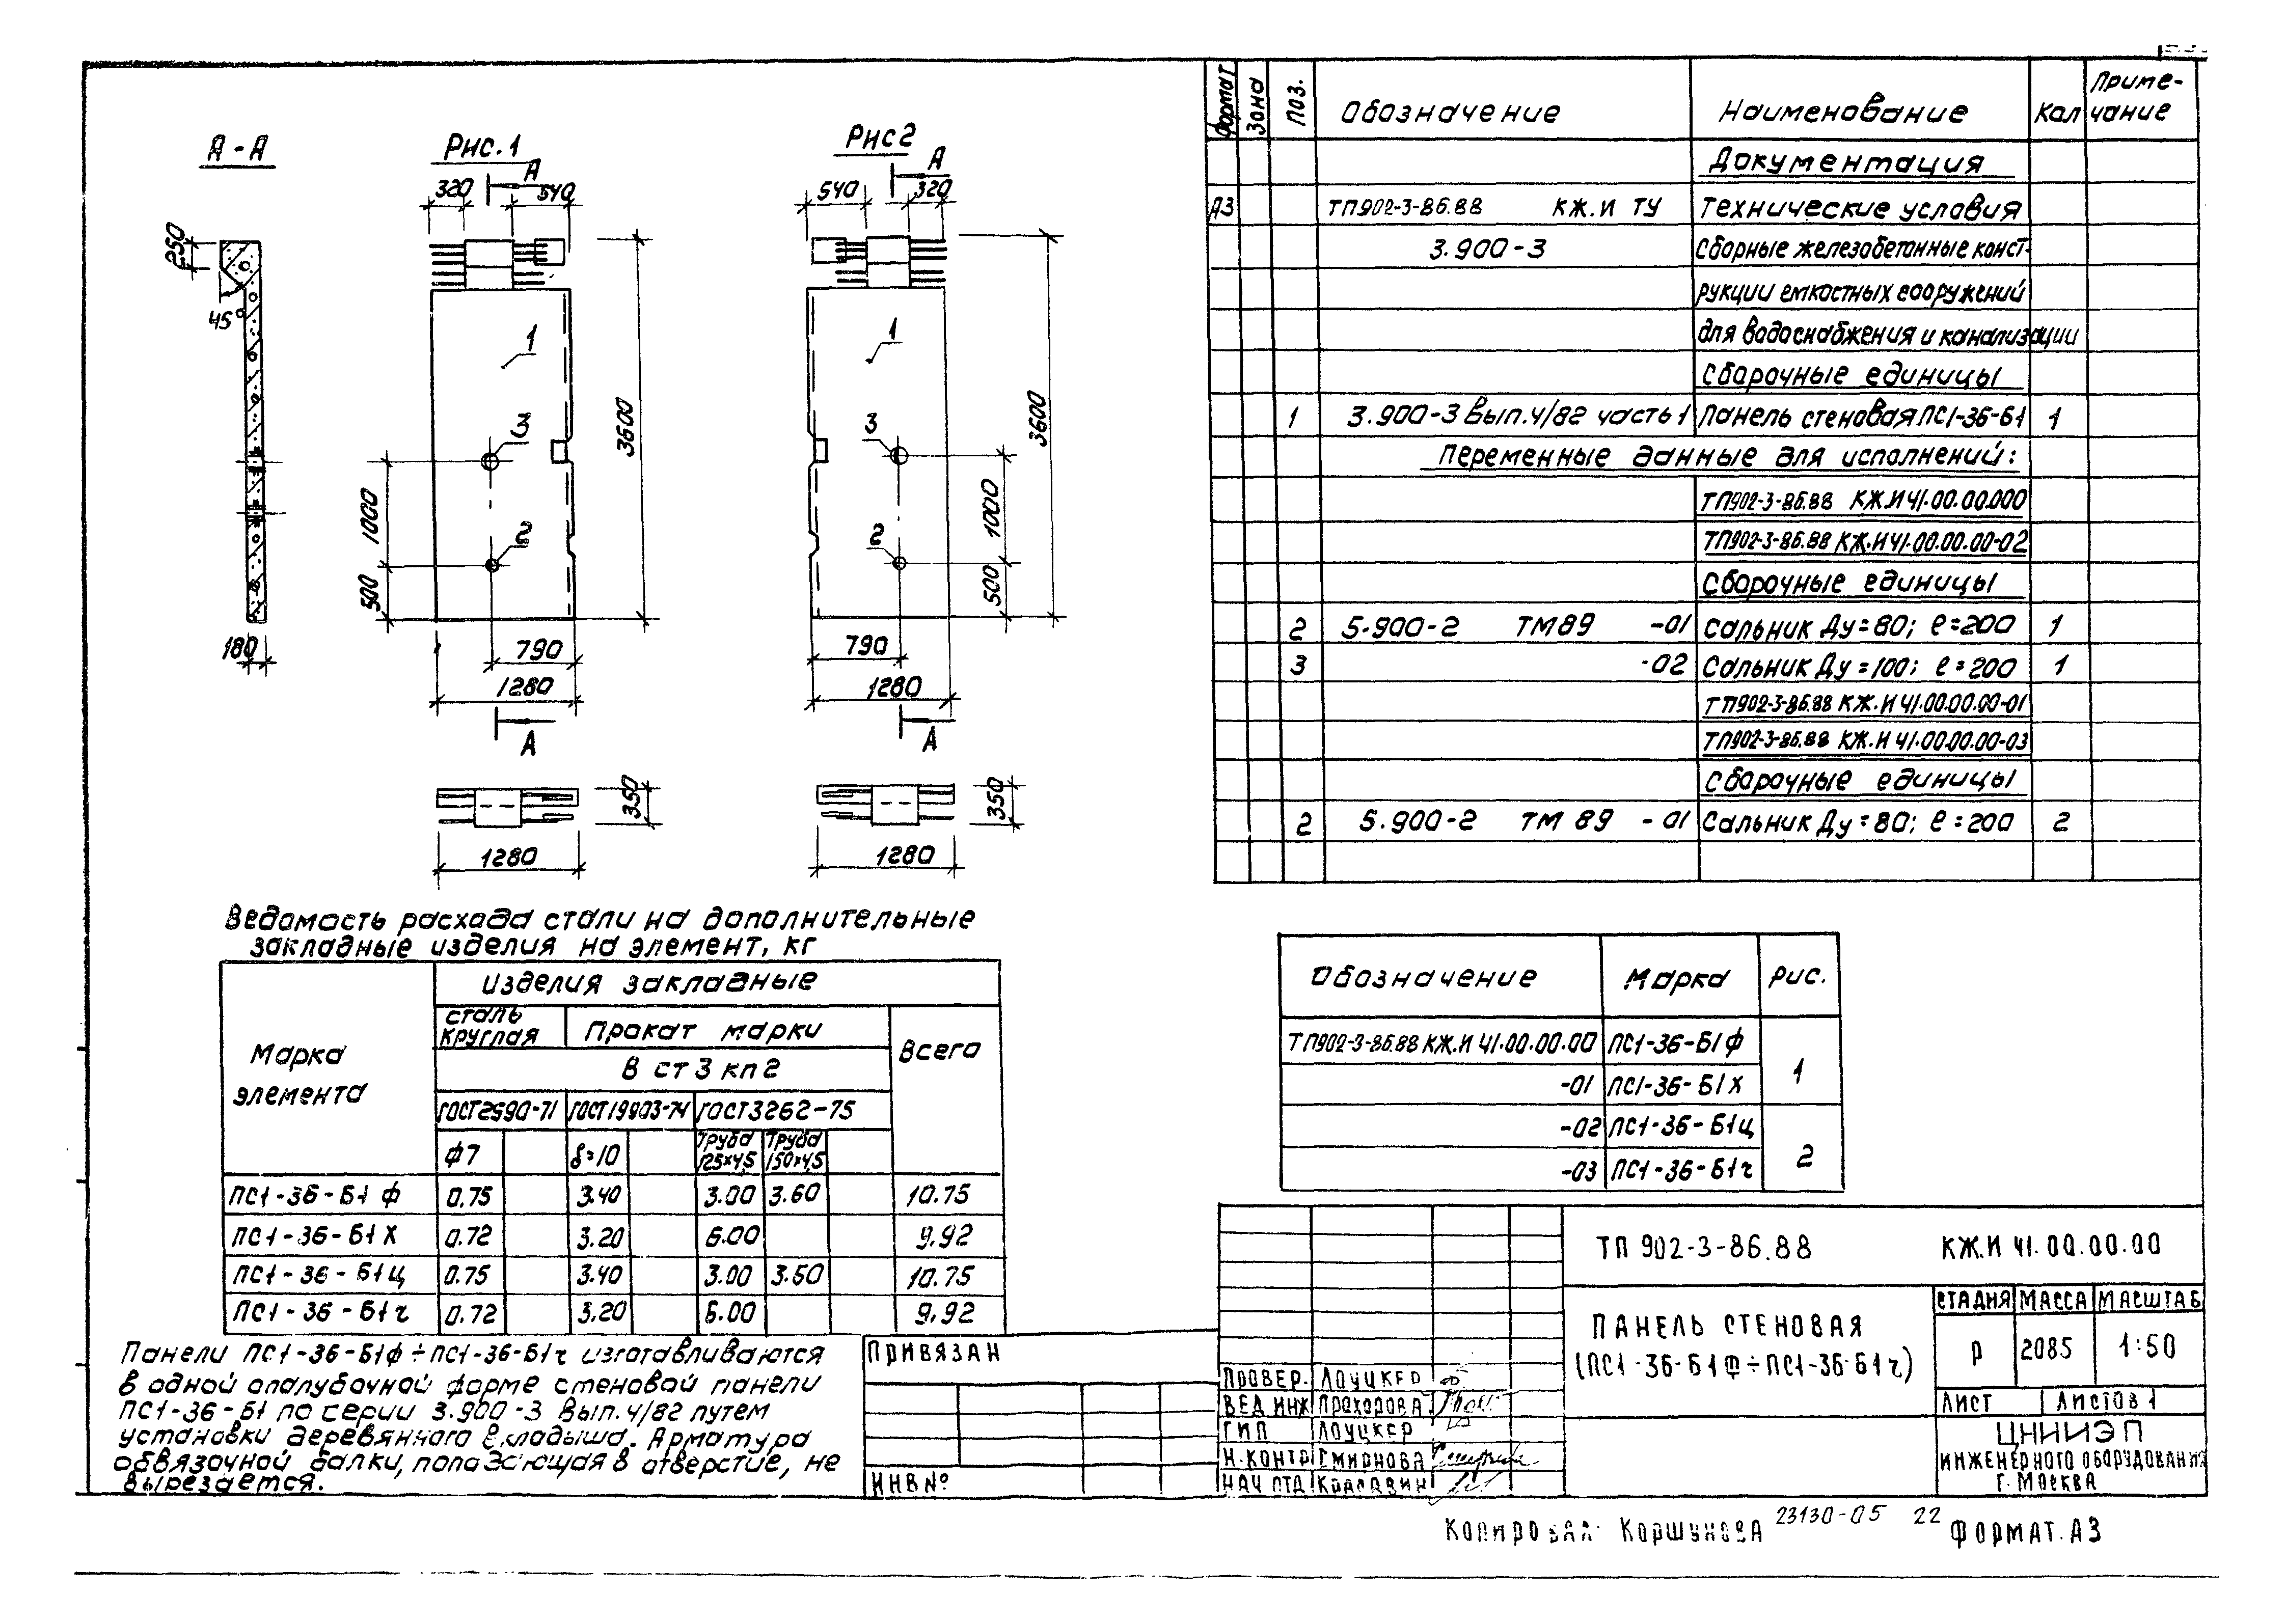 А-А
250
45°
180
Рис.1
А
320
540
3600
1
3
2
1000
500
790
1280
А
350
1280
Рис2
А
540
320
3600
1
3
2
1000
500
790
1280
А
350
1280
Формат
Зона
Поз.
Обозначение
Наименование
Кол
Приме-
чание
Документация
А3 ТП902-3-86.88 КЖ.И ТУ Технические условия
3.900-3 Сборные железобетонные конст-
рукции емкостных сооружений
для водоснабжения и канализации
Сборочные единицы
1 3.900-3 Вып.4/82 часть 1 Панель стеновая ПС1-36-Б1 1
Переменные данные для исполнений:
ТП902-3-86.88 КЖ.И 41.00.00.000
ТП902-3-86.88 КЖ.И 41.00.00.00-02
Сборочные единицы
2 5.900-2 ТМ89 -01 Сальник Ду=80; ℓ=200 1
3 -02 Сальник Ду=100; ℓ=200 1
ТП902-3-86.88 КЖ.И 41.00.00.00-01
ТП902-3-86.88 КЖ.И 41.00.00.00-03
Сборочные единицы
2 5.900-2 ТМ 89 -01 Сальник Ду=80; ℓ=200 2
Ведомость расхода стали на дополнительные
закладные изделия на элемент, кг
Марка
элемента
Изделия закладные
Всего
сталь
круглая
Прокат марки
В ст 3 кп 2
ГОСТ2590-71 ГОСТ19903-74 ГОСТ3262-75
ф7 δ=10 Труба
125×4,5 Труба
150×4,5
ПС1-36-Б1 ф 0,75 3.40 3.00 3.60 10.75
ПС1-36-Б1 Х 0.72 3.20 6.00 9.92
ПС1-36-Б1 ц 0.75 3.40 3.00 3.60 10.75
ПС1-36-Б1 ч 0.72 3.20 6.00 9.92
Панели ПС1-36-Б1ф÷ПС1-36-Б1ч изготавливаются
в одной опалубочной форме стеновой панели
ПС1-36-Б1 по серии 3.900-3 Вып.4/82 путем
установки деревянного вкладыша. Арматура
обвязочной балки, попадающая в отверстие, не
вырезается.
Обозначение Марка Рис.
ТП902-3-86.88 КЖ.И 41.00.00.00 ПС1-36-Б1ф
1
-01 ПС1-36-Б1Х
-02 ПС1-36-Б1ц
2
-03 ПС1-36-Б1ч
ПРИВЯЗАН
ИНВ №
ПРОВЕР. ЛОУЦКЕР
ВЕД ИНЖ ПРОХОРОВА
ГИП ЛОУЦКЕР
Н.КОНТР СМИРНОВА
НАЧ ОТД
ТП 902-3-86.88 КЖ.И 41.00.00.00
ПАНЕЛЬ СТЕНОВАЯ
(ПС1-36-Б1ф÷ПС1-36-Б1ч)
СТАДИЯ МАССА МАСШТАБ
Р 2085 1:50
ЛИСТ ЛИСТОВ 1
ЦНИИЭП
ИНЖЕНЕРНОГО ОБОРУДОВАНИЯ
Г. МОСКВА
КОПИРОВАЛ: КОРШУНОВА 23130-05 22 ФОРМАТ.А3